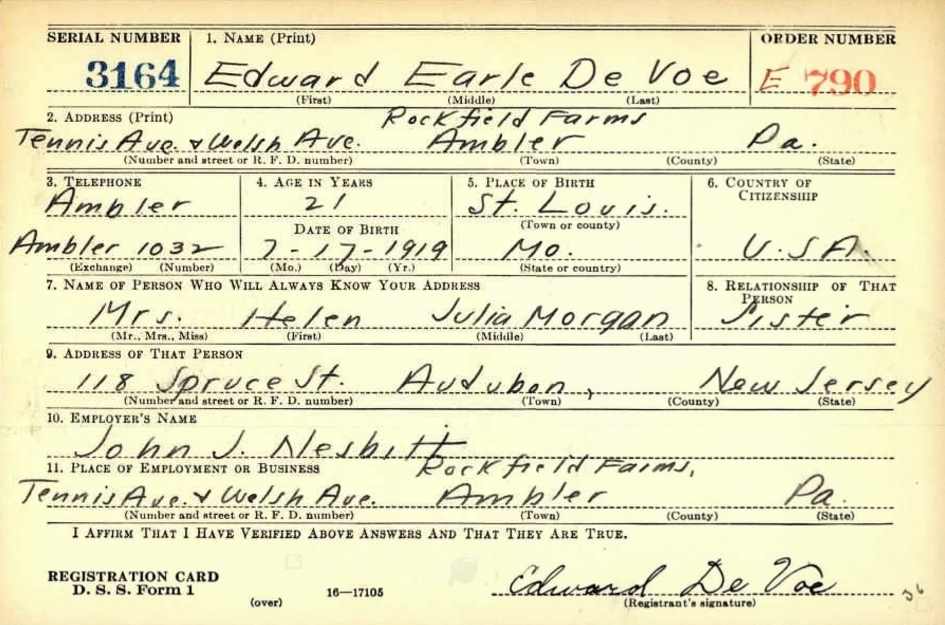 SERIAL NUMBER 1. NAME (Print) ORDER NUMBER
3164 Edward Earle De Voe E 790
(First) (Middle) (Last)
2. ADDRESS (Print) Rockfield Farms
Tennis Ave. & Welsh Ave. Ambler Pa.
(Number and street or R. F. D. number) (Town) (County) (State)
3. TELEPHONE 4. AGE IN YEARS 5. PLACE OF BIRTH 6. COUNTRY OF CITIZENSHIP
Ambler 21 St. Louis.
DATE OF BIRTH (Town or county)
Ambler 1032 7-17-1919 Mo. U.S.A.
(Exchange) (Number) (Mo.) (Day) (Yr.) (State or country)
7. NAME OF PERSON WHO WILL ALWAYS KNOW YOUR ADDRESS 8. RELATIONSHIP OF THAT PERSON
Mrs. Helen Julia Morgan Sister
(Mr., Mrs., Miss) (First) (Middle) (Last)
9. ADDRESS OF THAT PERSON
118 Spruce St. Audubon, New Jersey
(Number and street or R. F. D. number) (Town) (County) (State)
10. EMPLOYER'S NAME
John J. Nesbitt
11. PLACE OF EMPLOYMENT OR BUSINESS Rockfield Farms,
Tennis Ave. & Welsh Ave. Ambler Pa.
(Number and street or R. F. D. number) (Town) (County) (State)
I AFFIRM THAT I HAVE VERIFIED ABOVE ANSWERS AND THAT THEY ARE TRUE.
REGISTRATION CARD
D. S. S. Form 1 Edward De Voe
(over) 16—17105 (Registrant's signature) 36